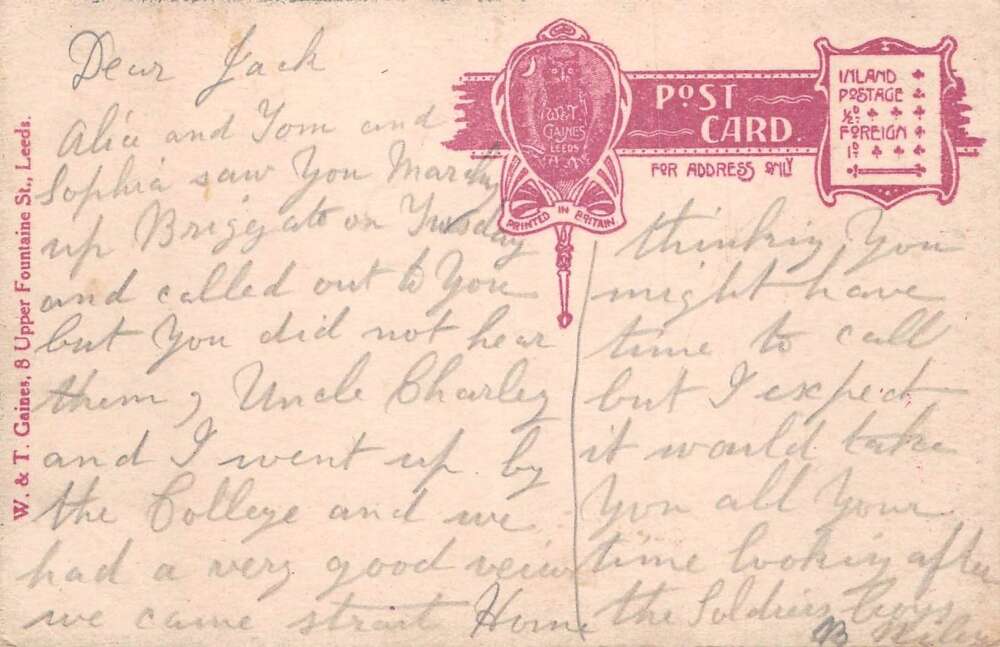 Dear Jack
Alice and Tom and
Sophia saw You
up Briggate on Tusday
and called out to You
but You did not hear
them, Uncle Charley
and I went up by
the College and we
had a very good veiw
we came strait Home
thinking You
might have
time to call
but I expect
it would take
You all Your
time looking after
the Soldiers boys
B Riley
W. & T. Gaines, 8 Upper Fountaine St., Leeds.
W. & T.
GAINES
LEEDS
PRINTED IN BRITAIN
POST
CARD.
FOR ADDRESS ONLY
INLAND
POSTAGE
½D
FOREIGN
1D